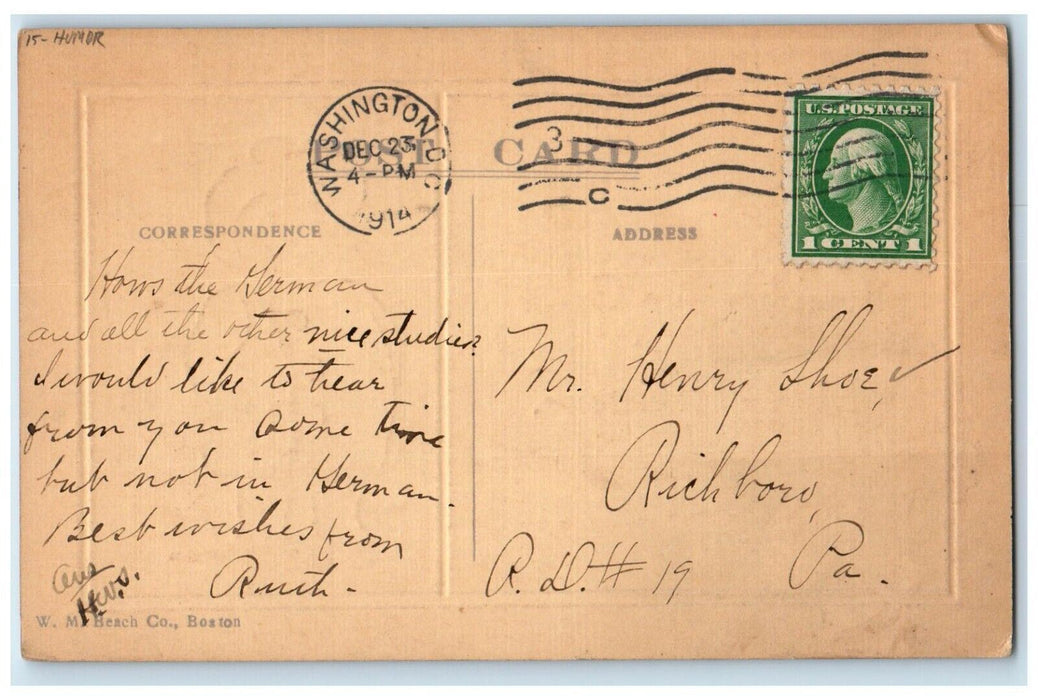 15- HUMOR
WASHINGTON, D.C.
DEC 23
4-PM
1914
3
C
U.S. POSTAGE
1 CENT 1
POST CARD
CORRESPONDENCE
ADDRESS
Hows the German
and all the other nice studies?
I would like to hear
from you some time
but not in German.
Best wishes from
Ruth.
Ans
H.V.S.
Mr. Henry Shoe,
Richboro,
Pa.
R.D.# 19
W. M. Beach Co., Boston